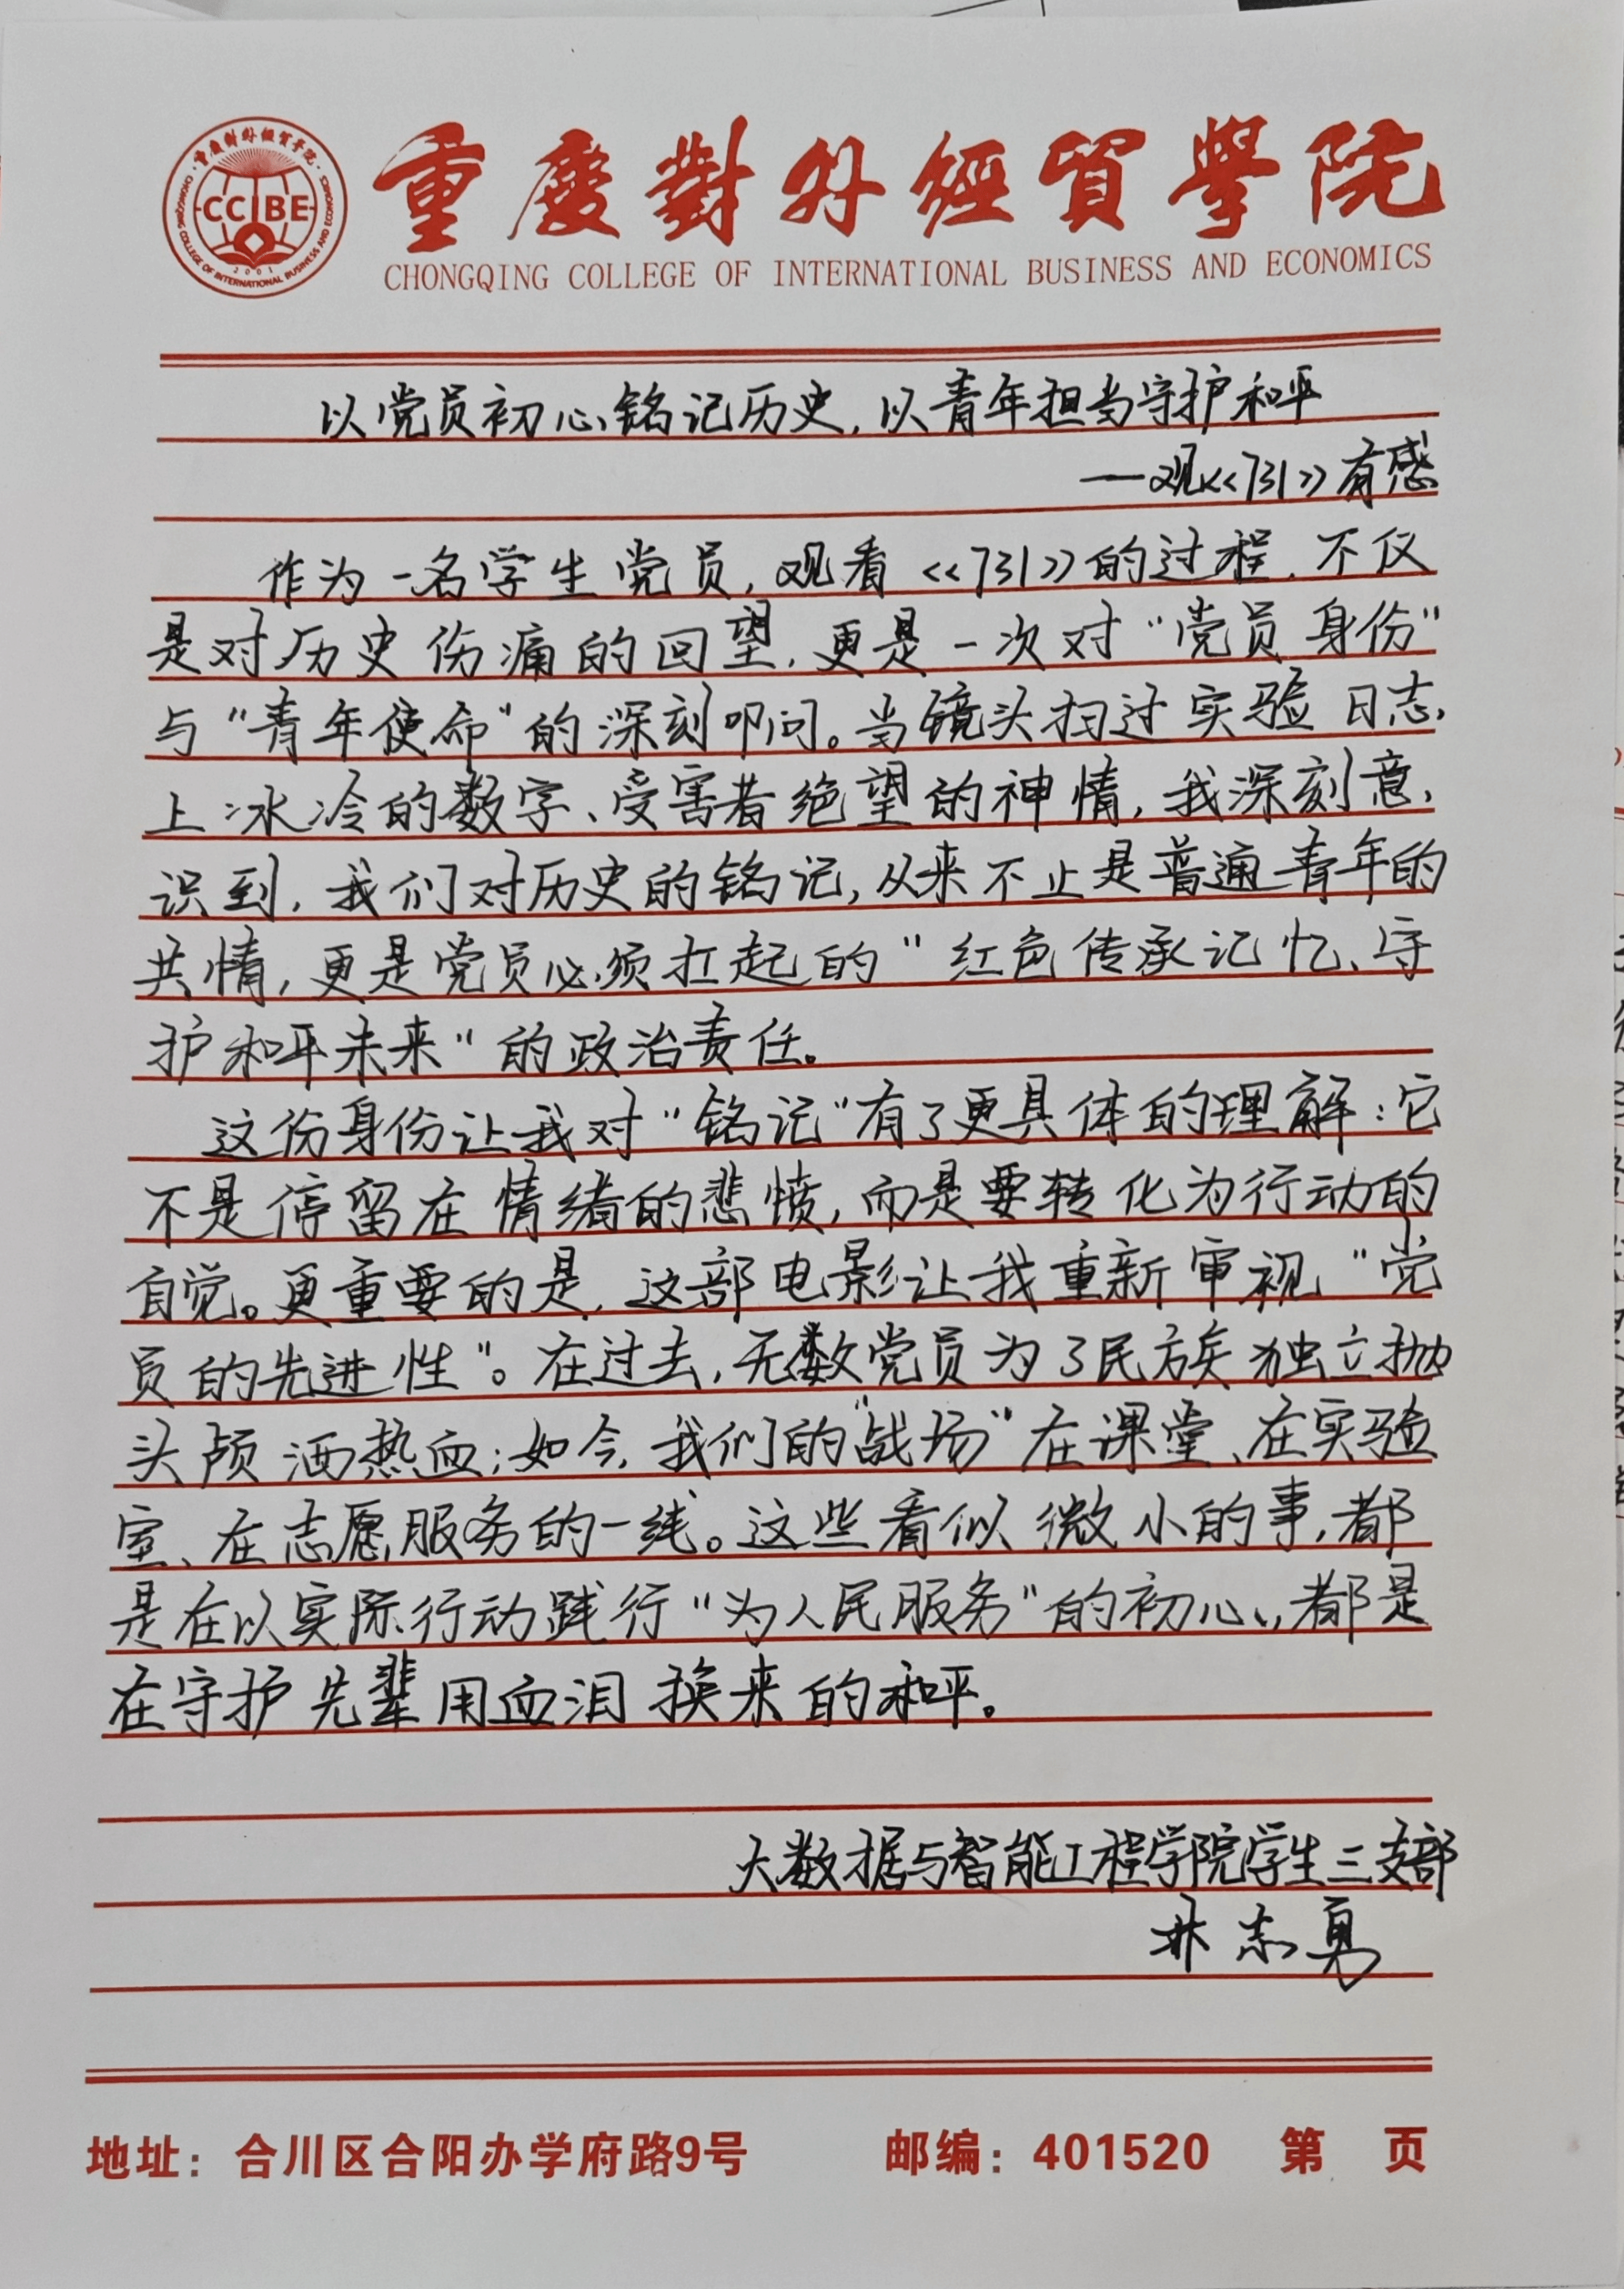 重慶對外經貿學院
CCIBE
2001
CHONGQING COLLEGE OF INTERNATIONAL BUSINESS AND ECONOMICS
以党员初心铭记历史，以青年担当守护和平
—观<<731>>有感
作为一名学生党员，观看<<731>>的过程，不仅
是对历史伤痛的回望，更是一次对“党员身份”
与“青年使命”的深刻叩问。当镜头扫过实验日志
上冰冷的数字、受害者绝望的神情，我深刻意
识到，我们对历史的铭记，从来不止是普通青年的
共情，更是党员必须扛起的“红色传承记忆、守
护和平未来”的政治责任。
这份身份让我对“铭记”有了更具体的理解：它
不是停留在情绪的悲愤，而是要转化为行动的
自觉。更重要的是，这部电影让我重新审视“党
员的先进性”。在过去，无数党员为了民族独立抛
头颅洒热血；如今，我们的“战场”在课堂、在实验
室、在志愿服务的一线。这些看似微小的事，都
是在以实际行动践行“为人民服务”的初心，都是
在守护先辈用血泪换来的和平。
大数据与智能工程学院学生三支部
志勇
地址：合川区合阳办学府路9号 邮编：401520 第 页